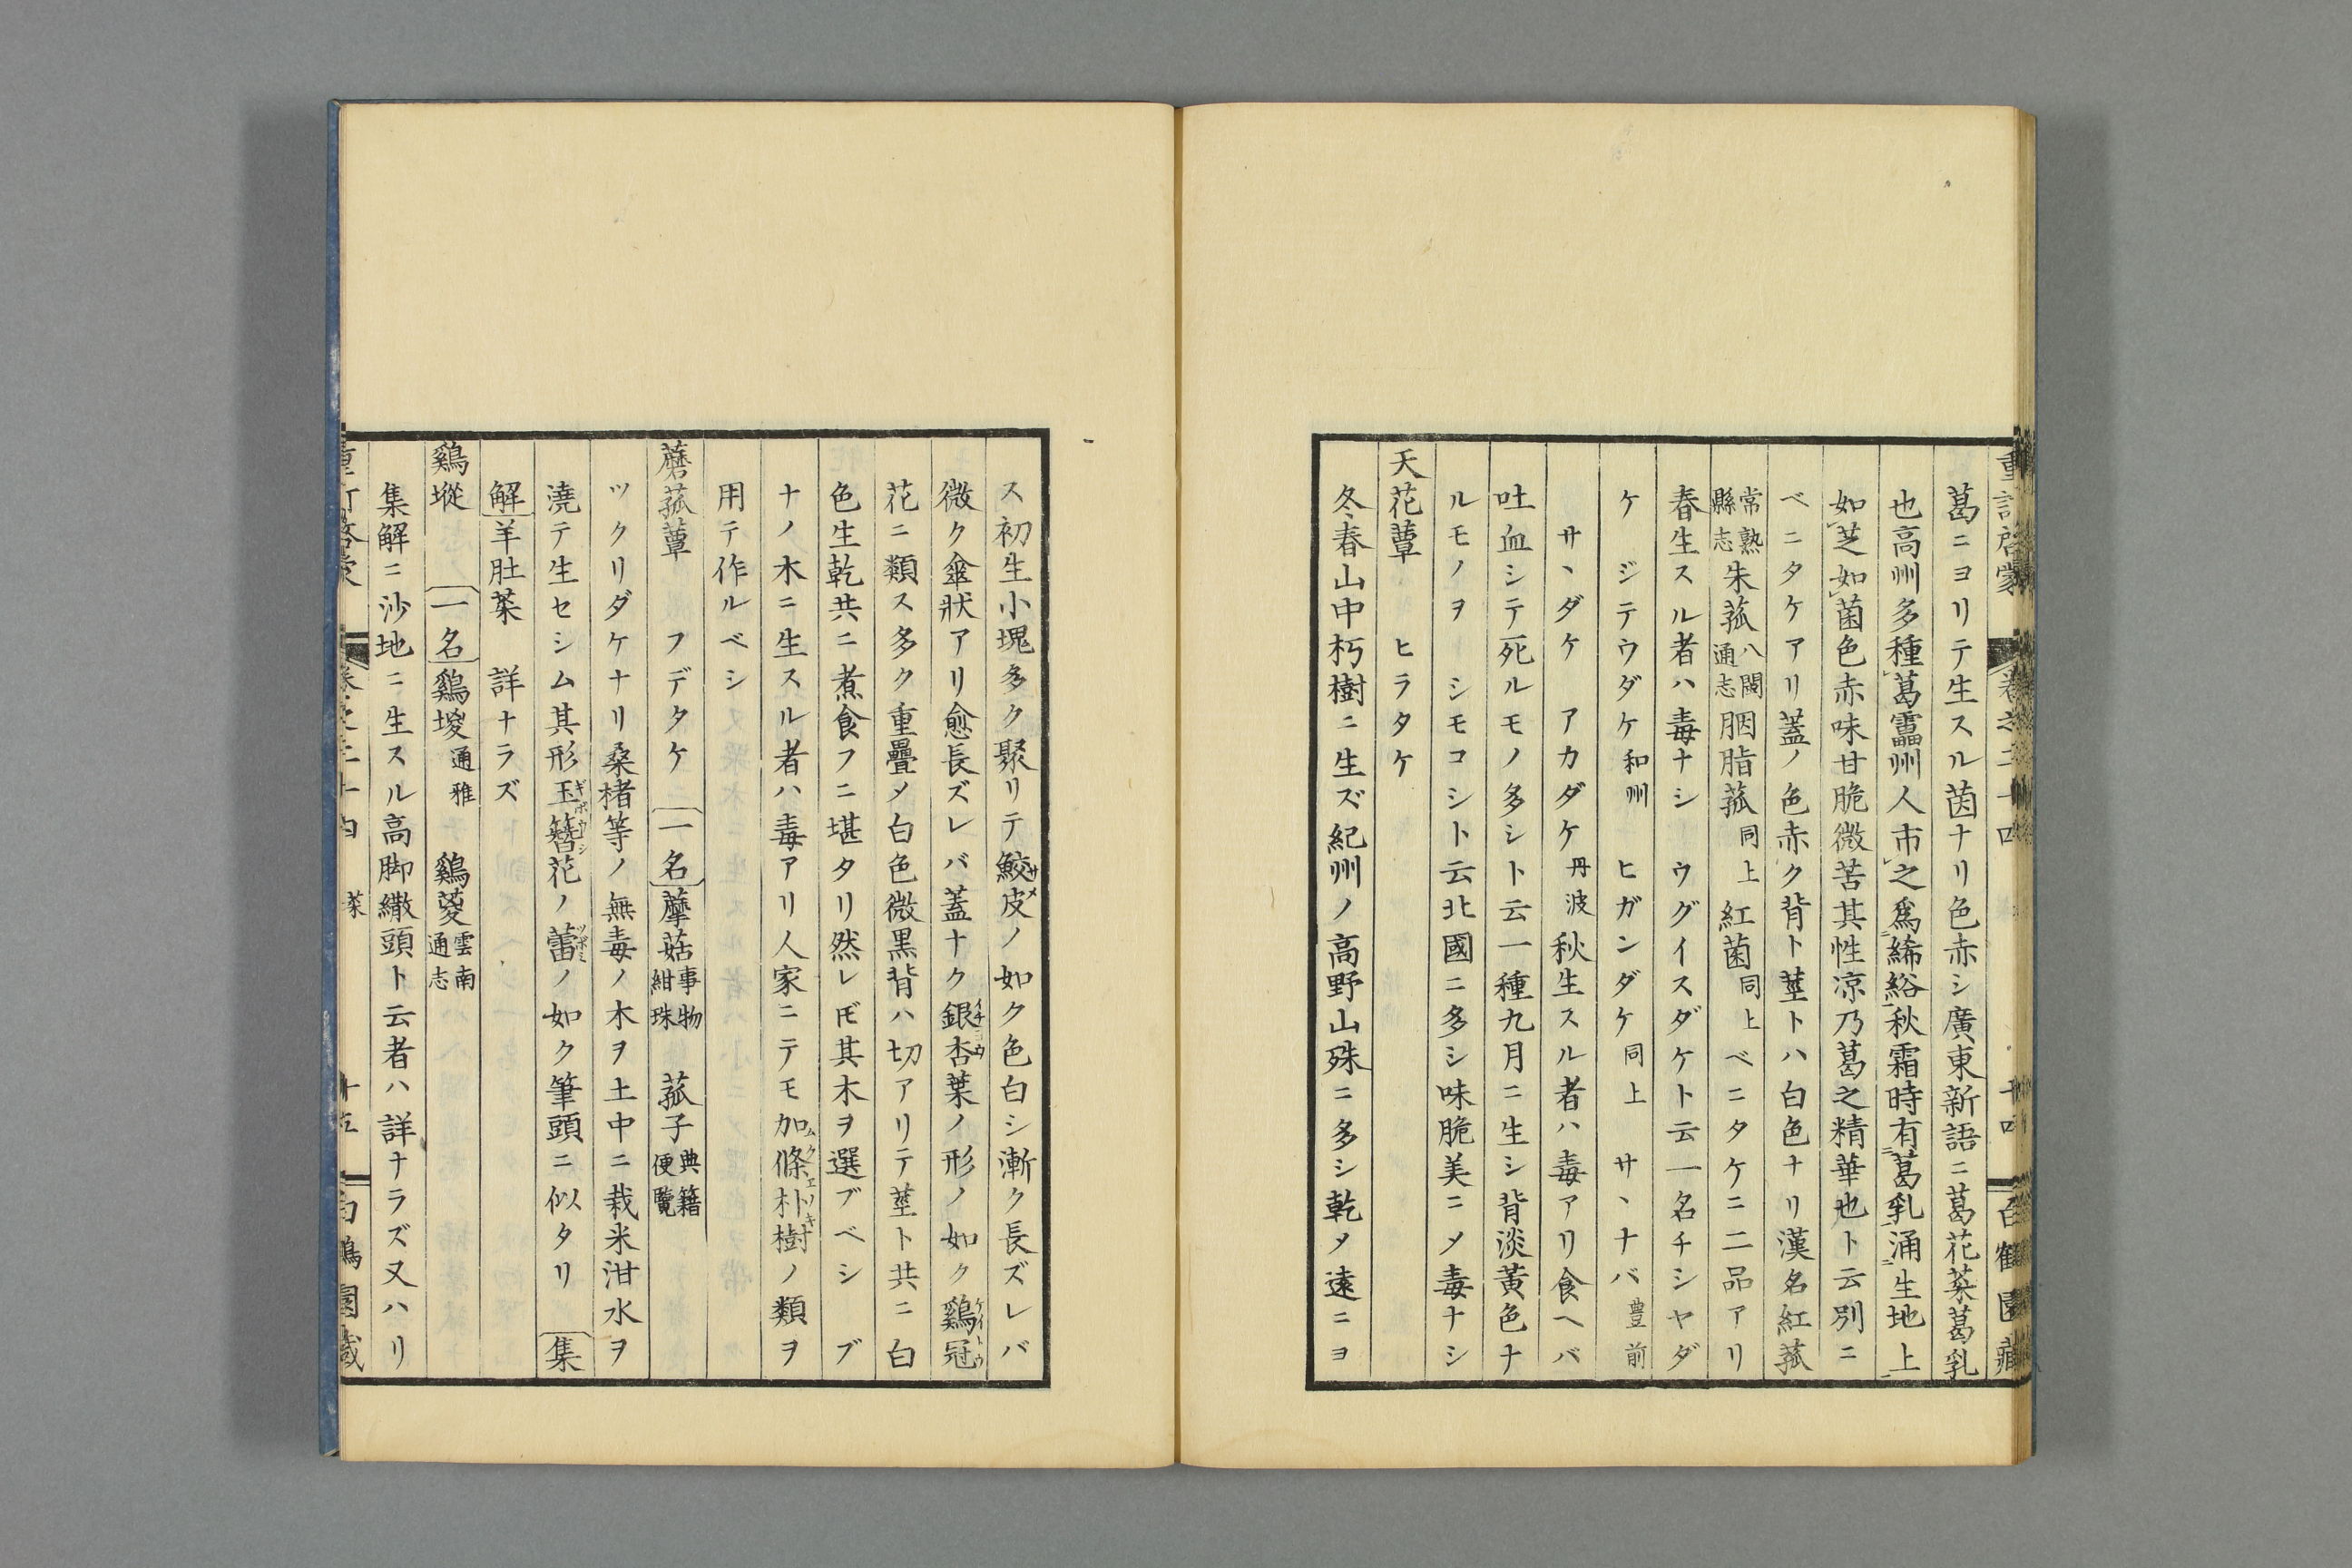 重訂啓蒙 卷之二十四 十四 白鶴園藏
葛ニヨリテ生スル茵ナリ色赤シ廣東新語ニ葛花菜葛乳
也高州多種葛靁州人市之爲絺綌秋霜時有葛乳涌生地上
如芝如菌色赤味甘脆微苦其性涼乃葛之精華也ト云別ニ
ベニタケアリ蓋ノ色赤ク背ト莖トハ白色ナリ漢名紅菰
常熟縣志 朱菰 八閩通志 胭脂菰 同上 紅菌 同上 ベニタケニ二品アリ
春生スル者ハ毒ナシ ウグイスダケト云一名チシヤダ
ケ ジテウダケ 和州 ヒガンダケ 同上 サヽナバ 豊前
サヽダケ アカダケ 丹波 秋生スル者ハ毒アリ食ヘバ
吐血シテ死ルモノ多シト云一種九月ニ生シ背淡黃色ナ
ルモノヲ シモコシト云北國ニ多シ味脆美ニメ毒ナシ
天花蕈 ヒラタケ
冬春山中朽樹ニ生ズ紀州ノ高野山殊ニ多シ乾メ遠ニヨ
ス初生小塊多ク聚リテ鮫皮ノ如ク色白シ漸ク長ズレバ
微ク傘狀アリ愈長ズレバ蓋ナク銀杏葉ノ形ノ如ク鷄冠
花ニ類ス多ク重疊メ白色微黒背ハ切アリテ莖ト共ニ白
色生乾共ニ煮食フニ堪タリ然レ𪜈其木ヲ選ブベシ ブ
ナノ木ニ生スル者ハ毒アリ人家ニテモ加條朴樹ノ類ヲ
用テ作ルベシ
蘑菰蕈 フデタケ 一名 蘑菇 事物紺珠 菰子 典籍便覽
ツクリダケナリ桑楮等ノ無毒ノ木ヲ土中ニ栽米泔水ヲ
澆テ生セシム其形玉簪花ノ蕾ノ如ク筆頭ニ似タリ 集
解 羊肚菜 詳ナラズ
鷄㙡 一名 鷄堫 通雅 鷄葼 雲南通志
集解ニ沙地ニ生スル高脚繖頭ト云者ハ詳ナラズ又ハリ
重訂啓蒙 卷之二十四 菜 十五 白鶴園藏